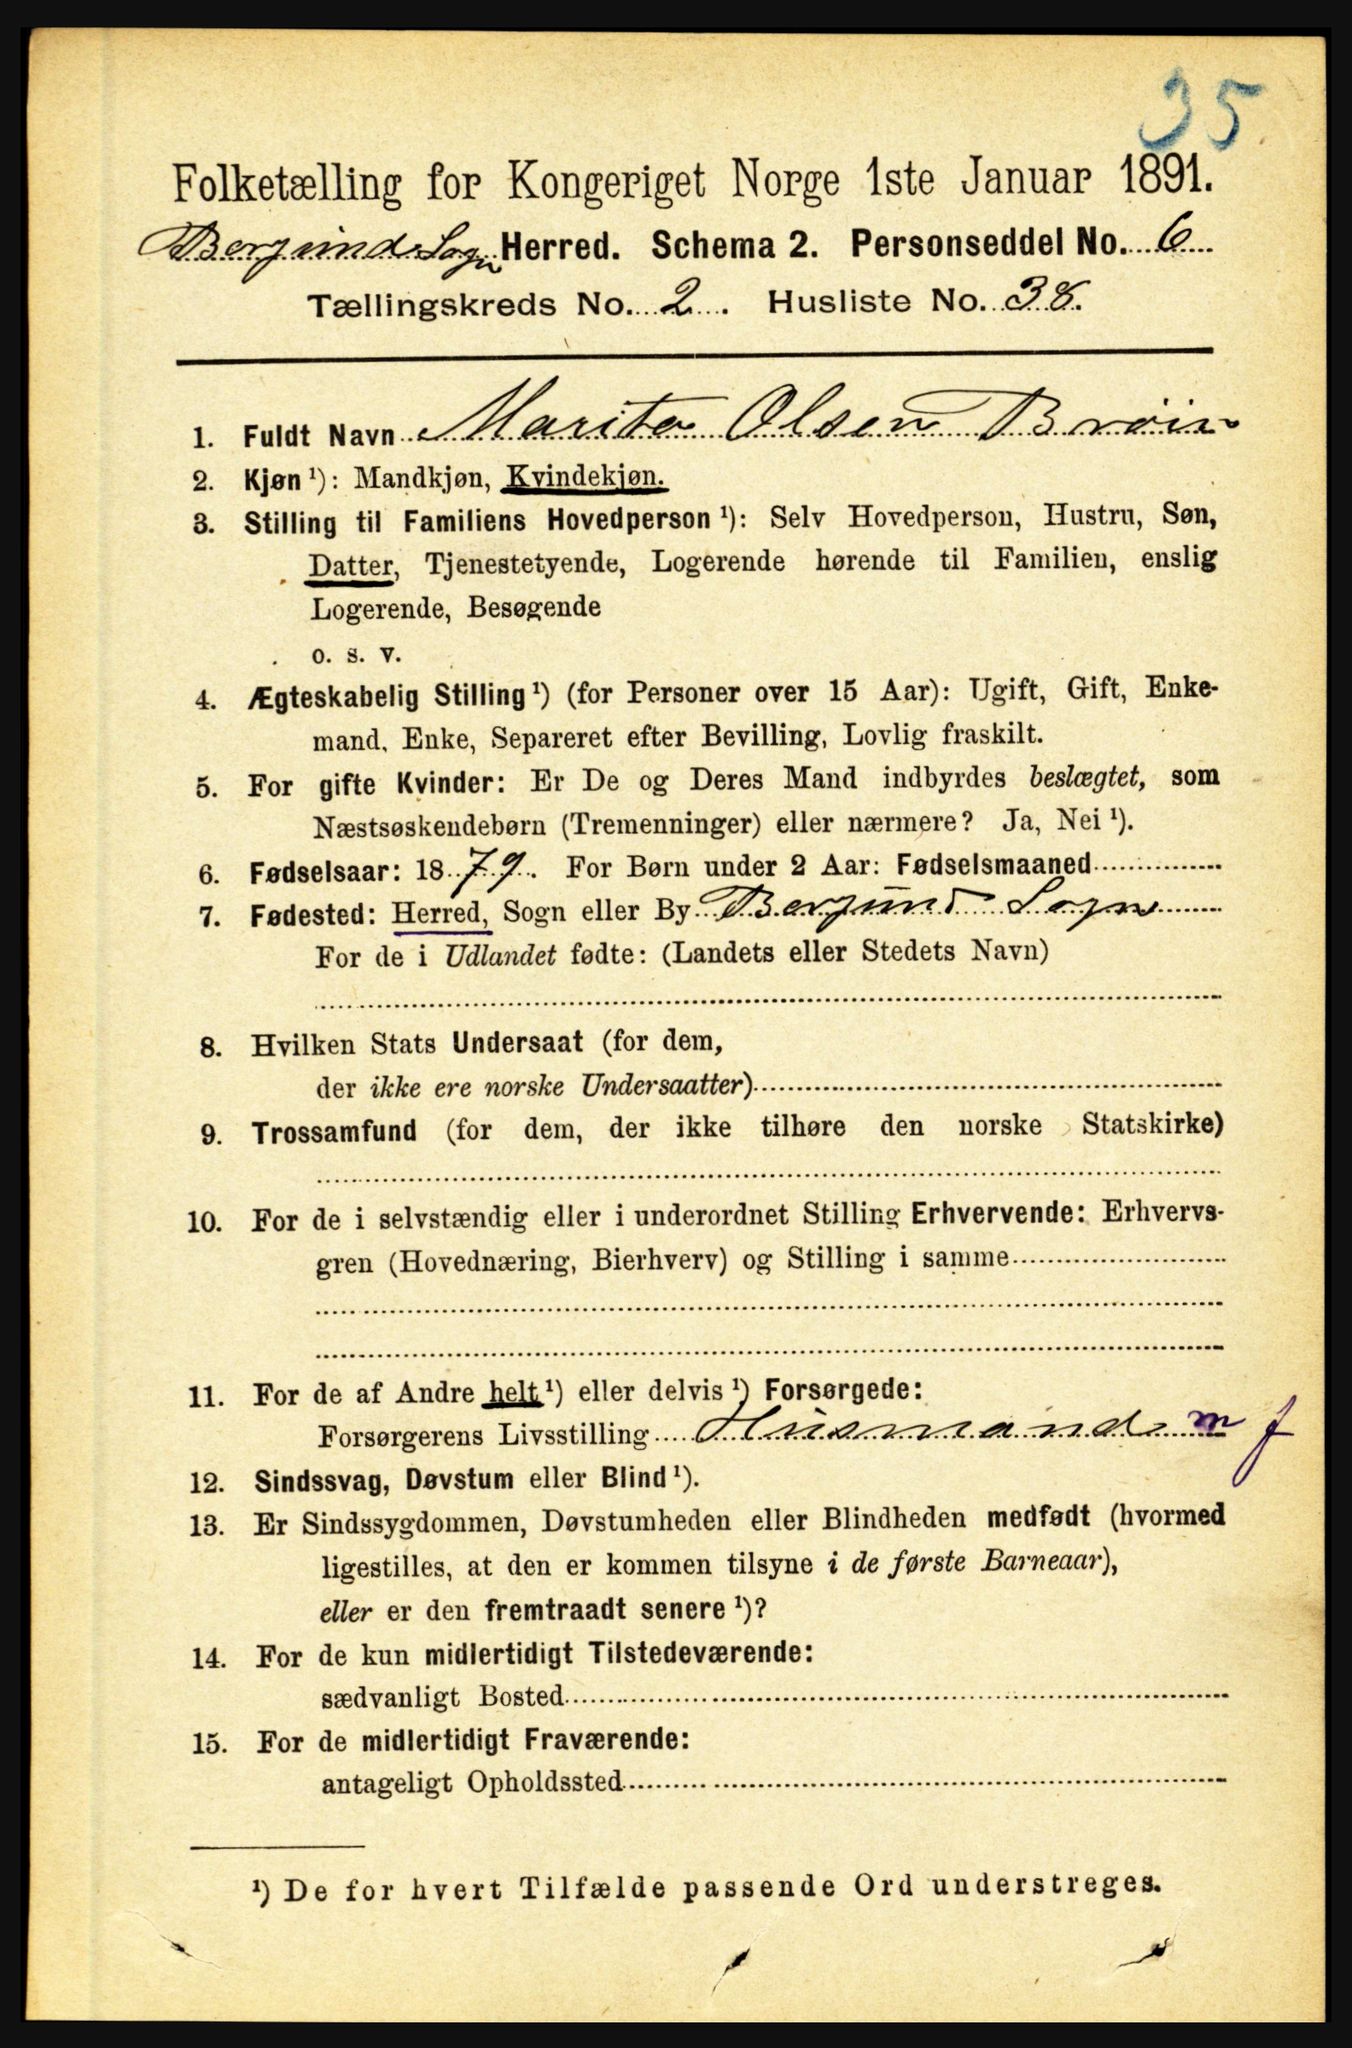 35
Folketælling for Kongeriget Norge 1ste Januar 1891.
Borgund Sogn Herred. Schema 2. Personseddel No. 6
Tællingskreds No. 2. Husliste No. 38.
1. Fuldt Navn Marita Olsen Brøin
2. Kjøn ¹): Mandkjøn, Kvindekjøn.
3. Stilling til Familiens Hovedperson ¹): Selv Hovedperson, Hustru, Søn,
Datter, Tjenestetyende, Logerende hørende til Familien, enslig
Logerende, Besøgende
o. s. v.
4. Ægteskabelig Stilling ¹) (for Personer over 15 Aar): Ugift, Gift, Enke-
mand, Enke, Separeret efter Bevilling, Lovlig fraskilt.
5. For gifte Kvinder: Er De og Deres Mand indbyrdes beslægtet, som
Næstsøskendebørn (Tremenninger) eller nærmere? Ja, Nei ¹).
6. Fødselsaar: 1879. For Børn under 2 Aar: Fødselsmaaned
7. Fødested: Herred, Sogn eller By Borgund Sogn
For de i Udlandet fødte: (Landets eller Stedets Navn)
8. Hvilken Stats Undersaat (for dem,
der ikke ere norske Undersaatter)
9. Trossamfund (for dem, der ikke tilhøre den norske Statskirke)
10. For de i selvstændig eller i underordnet Stilling Erhvervende: Erhvervs-
gren (Hovednæring, Bierhverv) og Stilling i samme
11. For de af Andre helt ¹) eller delvis ¹) Forsørgede:
Forsørgerens Livsstilling Husmand m f
12. Sindssvag, Døvstum eller Blind ¹).
13. Er Sindssygdommen, Døvstumheden eller Blindheden medfødt (hvormed
ligestilles, at den er kommen tilsyne i de første Barneaar),
eller er den fremtraadt senere ¹)?
14. For de kun midlertidigt Tilstedeværende:
sædvanligt Bosted
15. For de midlertidigt Fraværende:
antageligt Opholdssted
¹) De for hvert Tilfælde passende Ord understreges.